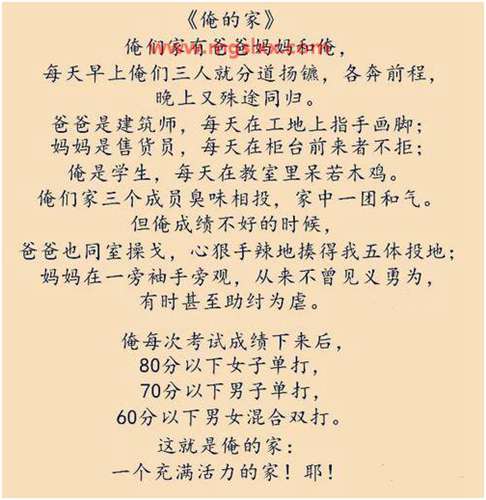 《俺的家》
俺们家有爸爸妈妈和俺，
每天早上俺们三人就分道扬镳，各奔前程，
晚上又殊途同归。
爸爸是建筑师，每天在工地上指手画脚；
妈妈是售货员，每天在柜台前来者不拒；
俺是学生，每天在教室里呆若木鸡。
俺们家三个成员臭味相投，家中一团和气。
但俺成绩不好的时候，
爸爸也同室操戈，心狠手辣地揍得我五体投地；
妈妈在一旁袖手旁观，从来不曾见义勇为，
有时甚至助纣为虐。
俺每次考试成绩下来后，
80分以下女子单打，
70分以下男子单打，
60分以下男女混合双打。
这就是俺的家：
一个充满活力的家！耶！